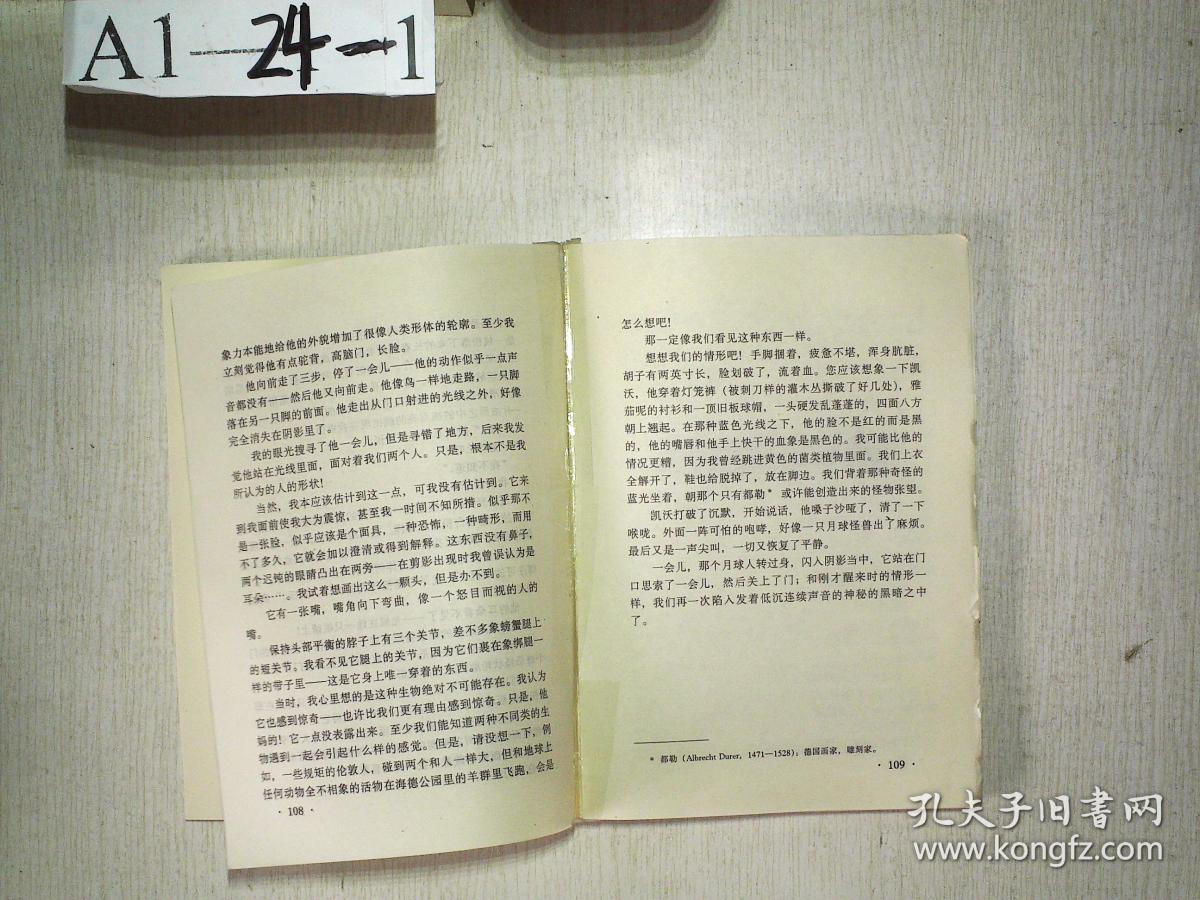 A1—24—1
象力本能地给他的外貌增加了很像人类形体的轮廓。至少我
立刻觉得他有点驼背，高脑门，长脸。
他向前走了三步，停了一会儿——他的动作似乎一点声
音都没有——然后他又向前走。他像鸟一样地走路，一只脚
落在另一只脚的前面。他走出从门口射进的光线之外，好像
完全消失在阴影里了。
我的眼光搜寻了他一会儿，但是寻错了地方，后来我发
觉他站在光线里面，面对着我们两个人。只是，根本不是我
所认为的人的形状！
当然，我本应该估计到这一点，可我没有估计到。它来
到我面前使我大为震惊，甚至我一时间不知所措。似乎那不
是一张脸，似乎应该是个面具，一种恐怖，一种畸形，而用
不了多久，它就会加以澄清或得到解释。这东西没有鼻子，
两个迟钝的眼睛凸出在两旁——在剪影出现时我曾误认为是
耳朵……。我试着想画出这么一颗头，但是办不到。
它有一张嘴，嘴角向下弯曲，像一个怒目而视的人的
嘴。
保持头部平衡的脖子上有三个关节，差不多象螃蟹腿上
的短关节。我看不见它腿上的关节，因为它们裹在象绑腿一
样的带子里——这是它身上唯一穿着的东西。
当时，我心里想的是这种生物绝对不可能存在。我认为
它也感到惊奇——也许比我们更有理由感到惊奇。只是，他
妈的！它一点没表露出来。至少我们能知道两种不同类的生
物遇到一起会引起什么样的感觉。但是，请没想一下，例
如，一些规矩的伦敦人，碰到两个和人一样大，但和地球上
任何动物全不相象的活物在海德公园里的羊群里飞跑，会是
· 108 ·
怎么想吧！
那一定像我们看见这种东西一样。
想想我们的情形吧！手脚捆着，疲惫不堪，浑身肮脏，
胡子有两英寸长，脸划破了，流着血。您应该想象一下凯
沃，他穿着灯笼裤（被刺刀样的灌木丛撕破了好几处），雅
茄呢的衬衫和一顶旧板球帽，一头硬发乱蓬蓬的，四面八方
朝上翘起。在那种蓝色光线之下，他的脸不是红的而是黑
的，他的嘴唇和他手上快干的血象是黑色的。我可能比他的
情况更糟，因为我曾经跳进黄色的菌类植物里面。我们上衣
全解开了，鞋也给脱掉了，放在脚边。我们背着那种奇怪的
蓝光坐着，朝那个只有都勒* 或许能创造出来的怪物张望。
凯沃打破了沉默，开始说话，他嗓子沙哑了，清了一下
喉咙。外面一阵可怕的咆哮，好像一只月球怪兽出了麻烦。
最后又是一声尖叫，一切又恢复了平静。
一会儿，那个月球人转过身，闪入阴影当中，它站在门
口思索了一会儿，然后关上了门；和刚才醒来时的情形一
样，我们再一次陷入发着低沉连续声音的神秘的黑暗之中
了。
* 都勒（Albrecht Durer，1471—1528）：德国画家，雕刻家。
· 109 ·
孔夫子旧书网
www.kongfz.com